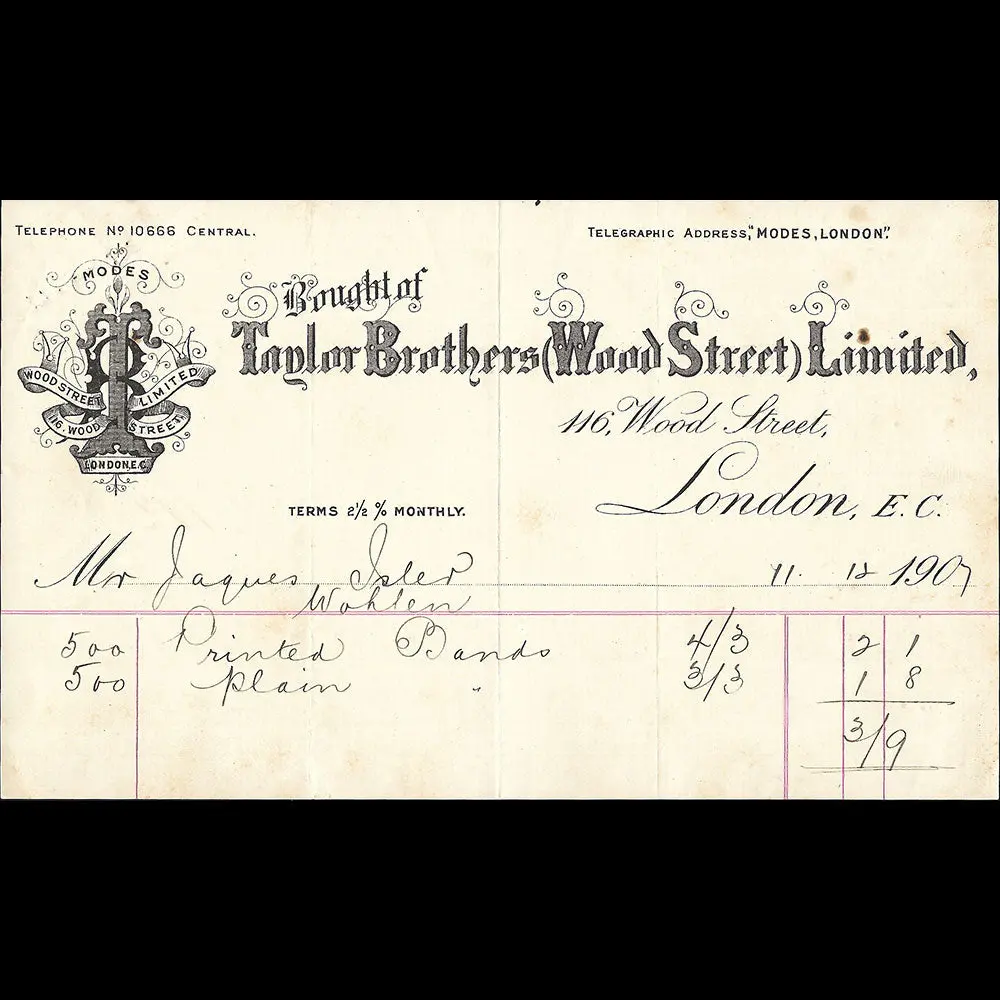 TELEPHONE Nº 10666 CENTRAL.
TELEGRAPHIC ADDRESS, "MODES, LONDON".
MODES
TB
WOOD STREET LIMITED
116, WOOD STREET,
LONDON, E.C.
Bought of
Taylor Brothers (Wood Street) Limited,
116, Wood Street,
London, E.C.
TERMS 2½ % MONTHLY.
Mr Jaques Isler
Wohlen
11. 12 1907
500 Printed Bands 4/3 2 1
500 plain " 3/3 1 8
3/9